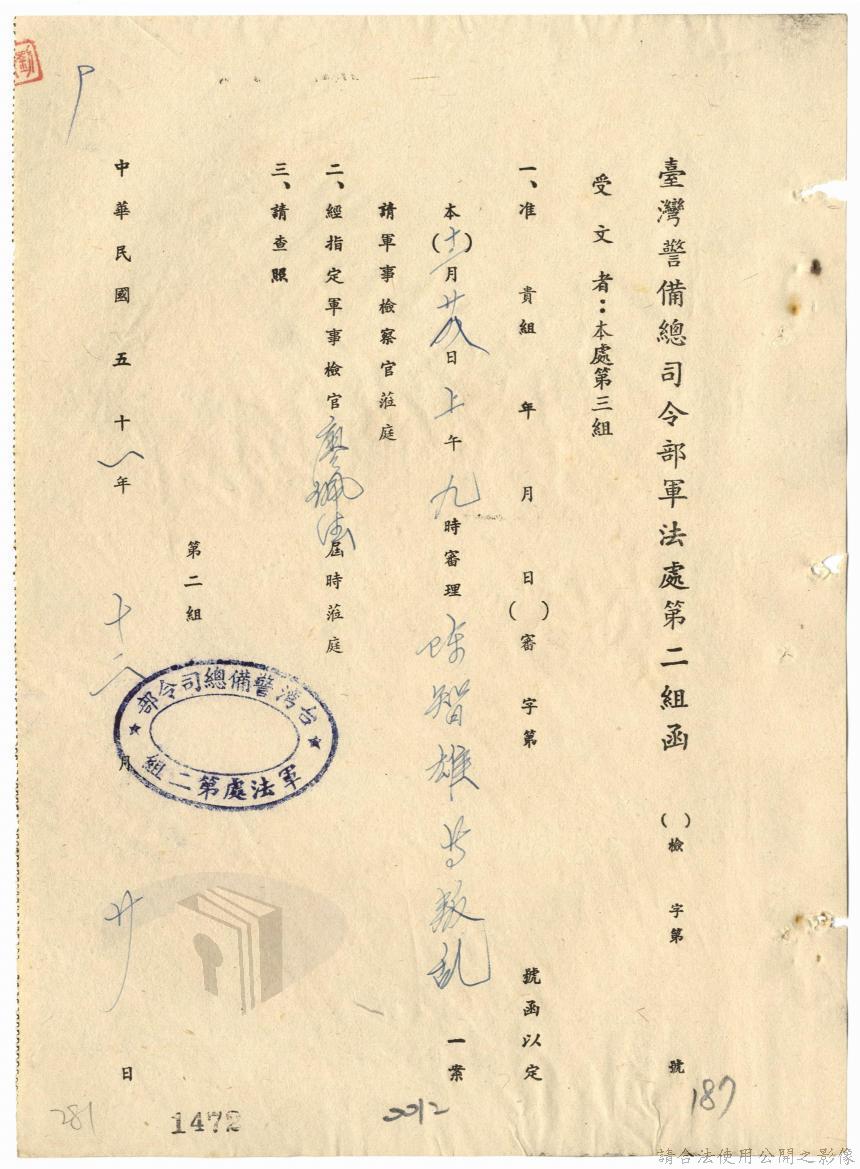 臺灣警備總司令部軍法處第二組函 ( )檢 字第 號
受文者：本處第三組
一、准 貴組 年 月 日( )審 字第 號函以定
本(十二)月廿八日上午九時審理陳智雄等叛乱一案
請軍事檢察官蒞庭
二、經指定軍事檢官廖珮法屆時蒞庭
三、請查照
第二組
台灣警備總司令部
軍法處第二組
中華民國五十 年十二月廿 日
劉
187
0012
1472
281
請合法使用公開之影像